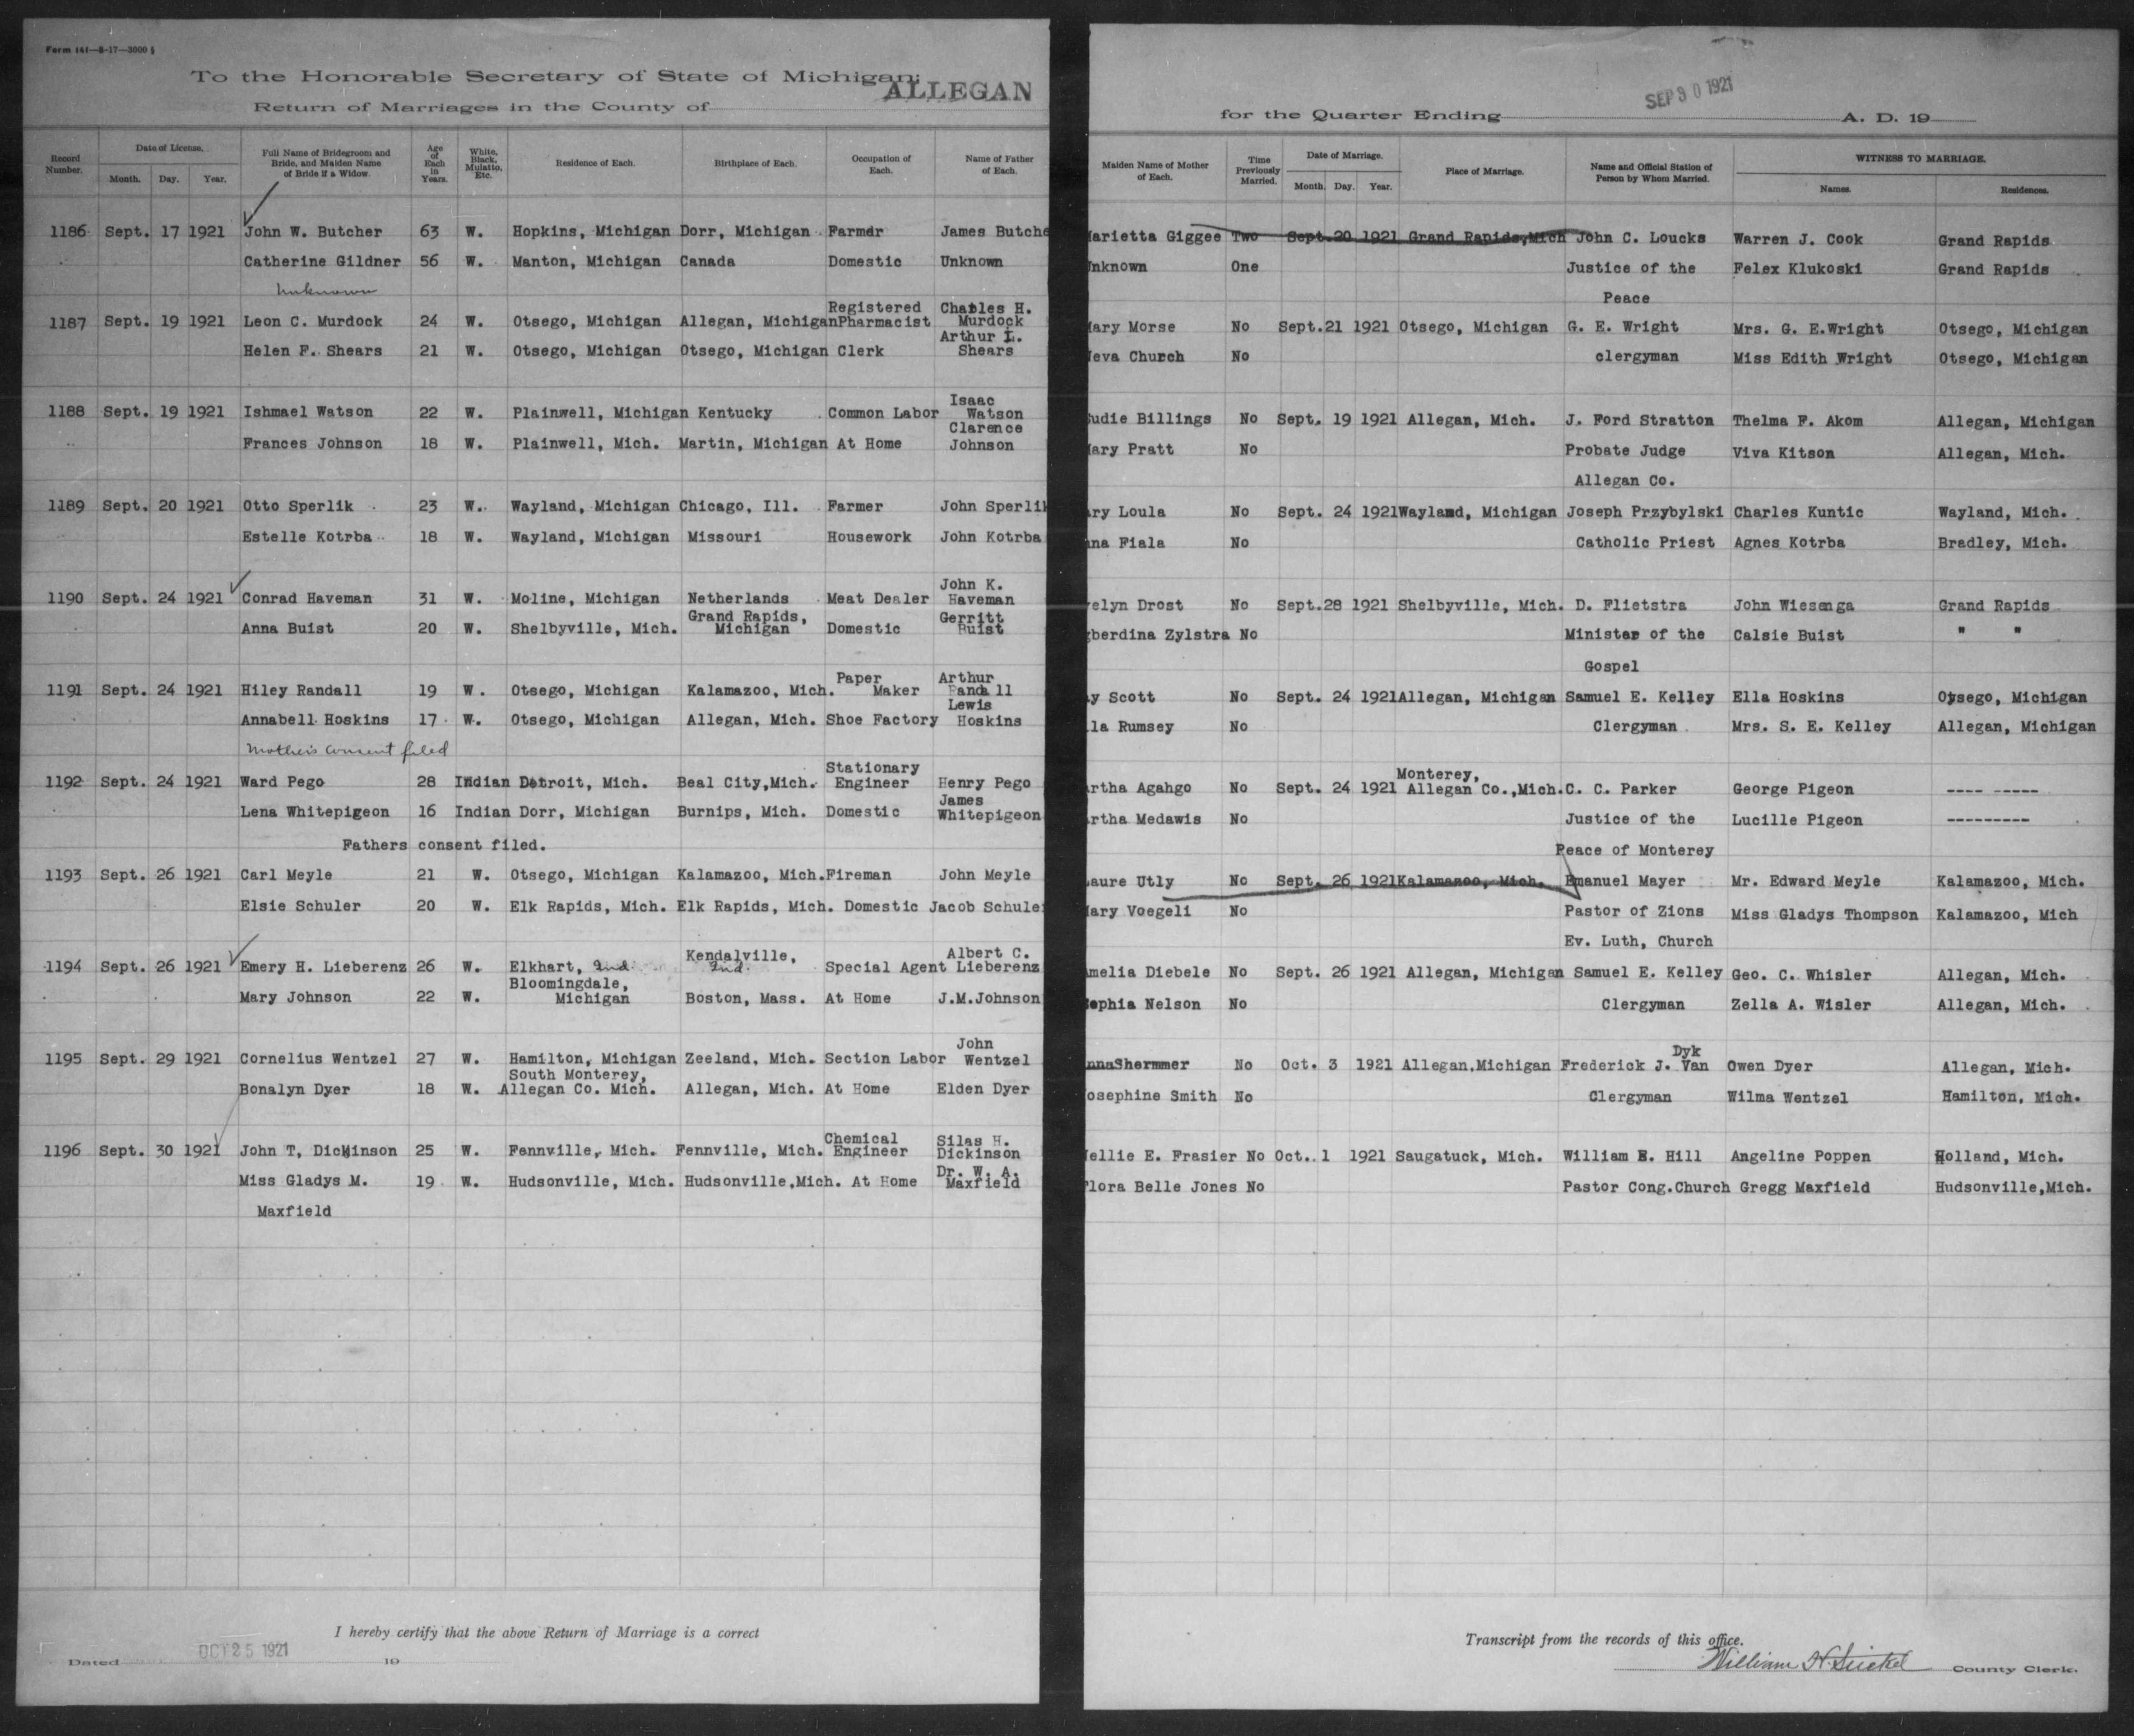 Form 141—8-17—3000 §
To the Honorable Secretary of State of Michigan:
Return of Marriages in the County of ALLEGAN
Record Number. Date of License. Month. Day. Year. Full Name of Bridegroom and Bride, and Maiden Name of Bride if a Widow. Age of Each in Years. White, Black, Mulatto, Etc. Residence of Each. Birthplace of Each. Occupation of Each. Name of Father of Each.
1186 Sept. 17 1921 John W. Butcher 63 W. Hopkins, Michigan Dorr, Michigan Farmer James Butche
Catherine Gildner 56 W. Manton, Michigan Canada Domestic Unknown
Unknown
Registered Charles H.
1187 Sept. 19 1921 Leon C. Murdock 24 W. Otsego, Michigan Allegan, Michigan Pharmacist Murdock
Arthur L.
Helen F. Shears 21 W. Otsego, Michigan Otsego, Michigan Clerk Shears
Isaac
1188 Sept. 19 1921 Ishmael Watson 22 W. Plainwell, Michigan Kentucky Common Labor Watson
Clarence
Frances Johnson 18 W. Plainwell, Mich. Martin, Michigan At Home Johnson
1189 Sept. 20 1921 Otto Sperlik 23 W. Wayland, Michigan Chicago, Ill. Farmer John Sperlik
Estelle Kotrba 18 W. Wayland, Michigan Missouri Housework John Kotrba
John K.
1190 Sept. 24 1921 Conrad Haveman 31 W. Moline, Michigan Netherlands Meat Dealer Haveman
Grand Rapids, Gerritt
Anna Buist 20 W. Shelbyville, Mich. Michigan Domestic Buist
Paper Arthur
1191 Sept. 24 1921 Hiley Randall 19 W. Otsego, Michigan Kalamazoo, Mich. Maker Randall
Lewis
Annabell Hoskins 17 W. Otsego, Michigan Allegan, Mich. Shoe Factory Hoskins
Mothers consent filed
Stationary
1192 Sept. 24 1921 Ward Pego 28 Indian Detroit, Mich. Beal City,Mich. Engineer Henry Pego
James
Lena Whitepigeon 16 Indian Dorr, Michigan Burnips, Mich. Domestic Whitepigeon
Fathers consent filed.
1193 Sept. 26 1921 Carl Meyle 21 W. Otsego, Michigan Kalamazoo, Mich. Fireman John Meyle
Elsie Schuler 20 W. Elk Rapids, Mich. Elk Rapids, Mich. Domestic Jacob Schule
Kendalville, Albert C.
1194 Sept. 26 1921 Emery H. Lieberenz 26 W. Elkhart, Ind. Ind. Special Agent Lieberenz
Bloomingdale,
Mary Johnson 22 W. Michigan Boston, Mass. At Home J.M.Johnson
John
1195 Sept. 29 1921 Cornelius Wentzel 27 W. Hamilton, Michigan Zeeland, Mich. Section Labor Wentzel
South Monterey,
Bonalyn Dyer 18 W. Allegan Co. Mich. Allegan, Mich. At Home Elden Dyer
Chemical Silas H.
1196 Sept. 30 1921 John T, Dickinson 25 W. Fennville, Mich. Fennville, Mich. Engineer Dickinson
Dr. W. A.
Miss Gladys M. 19 W. Hudsonville, Mich. Hudsonville,Mich. At Home Maxfield
Maxfield
I hereby certify that the above Return of Marriage is a correct
Dated OCT 25 1921 19
for the Quarter Ending SEP 30 1921 A. D. 19
Maiden Name of Mother of Each. Time Previously Married. Date of Marriage. Month. Day. Year. Place of Marriage. Name and Official Station of Person by Whom Married. WITNESS TO MARRIAGE. Names. Residences.
arietta Giggee Two Sept.20 1921 Grand Rapids,Mich John C. Loucks Warren J. Cook Grand Rapids
nknown One Justice of the Felex Klukoski Grand Rapids
Peace
ary Morse No Sept.21 1921 Otsego, Michigan G. E. Wright Mrs. G. E.Wright Otsego, Michigan
eva Church No clergyman Miss Edith Wright Otsego, Michigan
udie Billings No Sept. 19 1921 Allegan, Mich. J. Ford Stratton Thelma F. Akom Allegan, Michigan
ary Pratt No Probate Judge Viva Kitson Allegan, Mich.
Allegan Co.
ry Loula No Sept. 24 1921 Wayland, Michigan Joseph Przybylski Charles Kuntic Wayland, Mich.
na Fiala No Catholic Priest Agnes Kotrba Bradley, Mich.
elyn Drost No Sept.28 1921 Shelbyville, Mich. D. Flietstra John Wiesenga Grand Rapids
berdina Zylstra No Minister of the Calsie Buist " "
Gospel
y Scott No Sept. 24 1921 Allegan, Michigan Samuel E. Kelley Ella Hoskins Otsego, Michigan
la Rumsey No Clergyman Mrs. S. E. Kelley Allegan, Michigan
Monterey,
rtha Agahgo No Sept. 24 1921 Allegan Co.,Mich. C. C. Parker George Pigeon ---- -----
rtha Medawis No Justice of the Lucille Pigeon ---------
Peace of Monterey
aure Utly No Sept. 26 1921 Kalamazoo, Mich. Emanuel Mayer Mr. Edward Meyle Kalamazoo, Mich.
ary Voegeli No Pastor of Zions Miss Gladys Thompson Kalamazoo, Mich
Ev. Luth, Church
melia Diebele No Sept. 26 1921 Allegan, Michigan Samuel E. Kelley Geo. C. Whisler Allegan, Mich.
ophia Nelson No Clergyman Zella A. Wisler Allegan, Mich.
Dyk
nnaShermmer No Oct. 3 1921 Allegan,Michigan Frederick J. Van Owen Dyer Allegan, Mich.
osephine Smith No Clergyman Wilma Wentzel Hamilton, Mich.
ellie E. Frasier No Oct. 1 1921 Saugatuck, Mich. William E. Hill Angeline Poppen Holland, Mich.
lora Belle Jones No Pastor Cong.Church Gregg Maxfield Hudsonville,Mich.
Transcript from the records of this office.
William H. County Clerk.